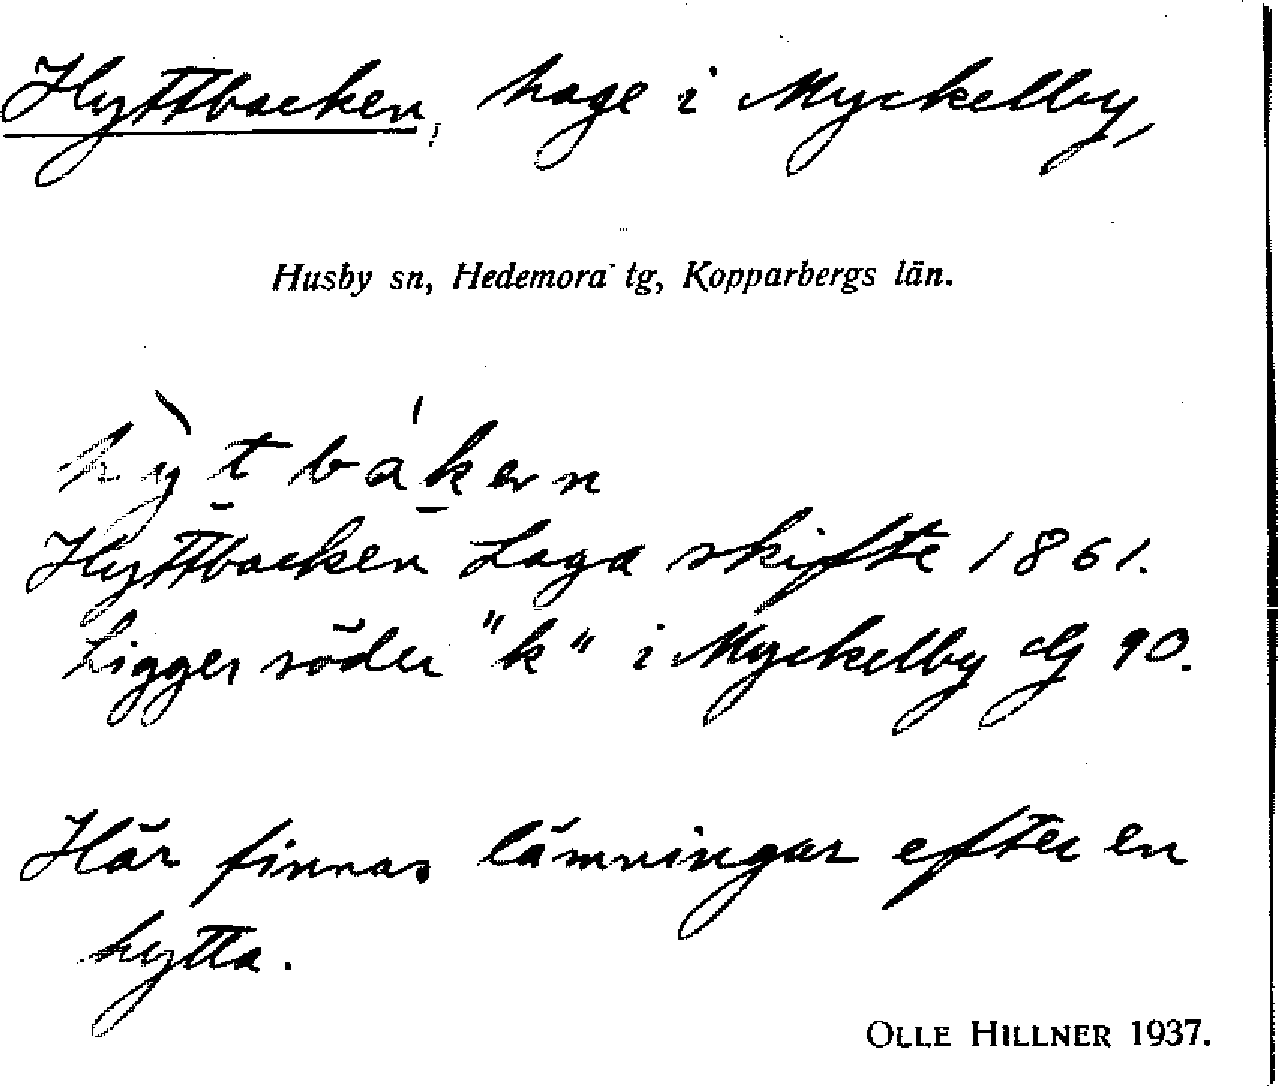 Hyttbacken, hage i Myckelby,
Husby sn, Hedemora tg, Kopparbergs län.
hỳt bákən
Hyttbacken Laga skifte 1861.
Ligger söder "k" i Myckelby 90.
Här finnas lämningar efter en
hytta.
OLLE HILLNER 1937.